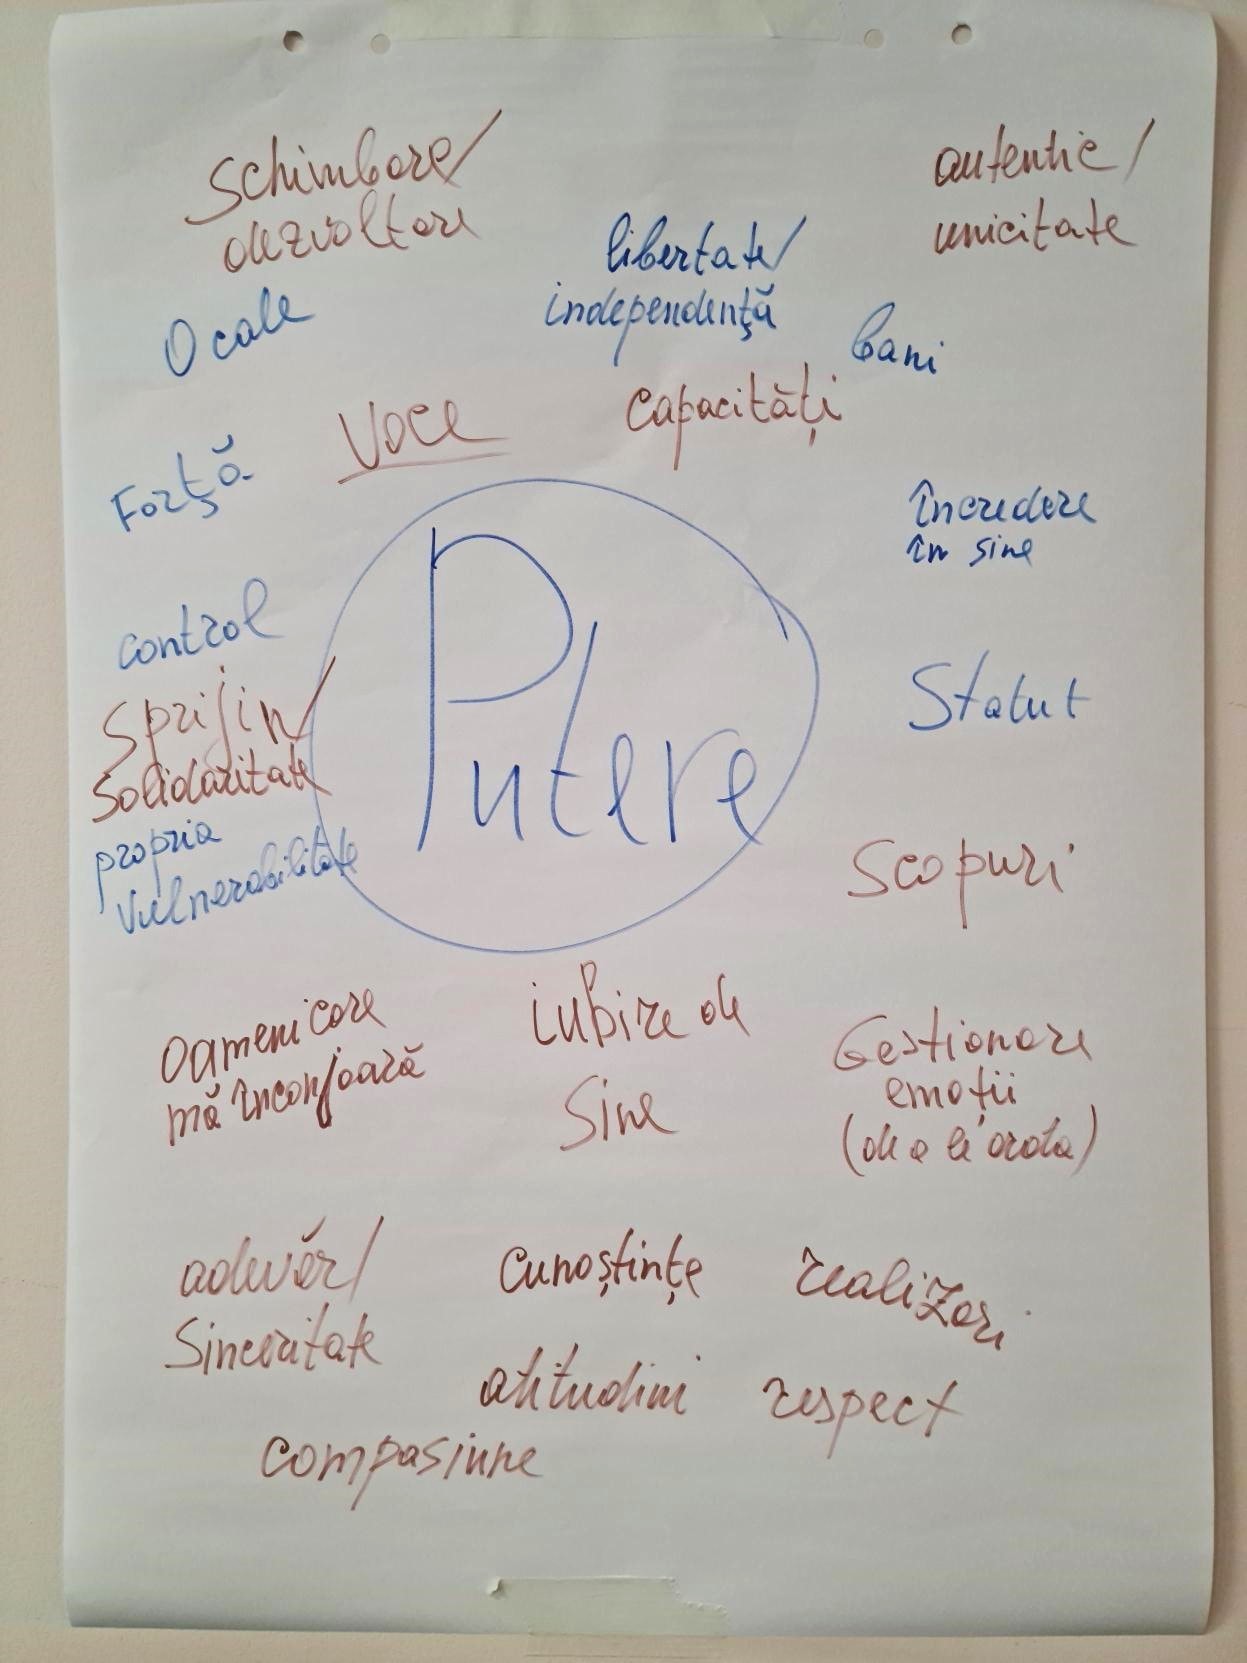 schimbare/
dezvoltare
autentic/
unicitate
libertate/
independență
O cale
bani
Voce
capacități
Forță
Încredere
în sine
control
Sprijin/
Solidaritate
propria
vulnerabilitate
Putere
Statut
Scopuri
Oameni care
mă înconjoară
iubire de
Sine
Gestionare
emoții
(de a le arăta)
adevăr/
Sinceritate
cunoștințe
realizări
atitudini
respect
compasiune